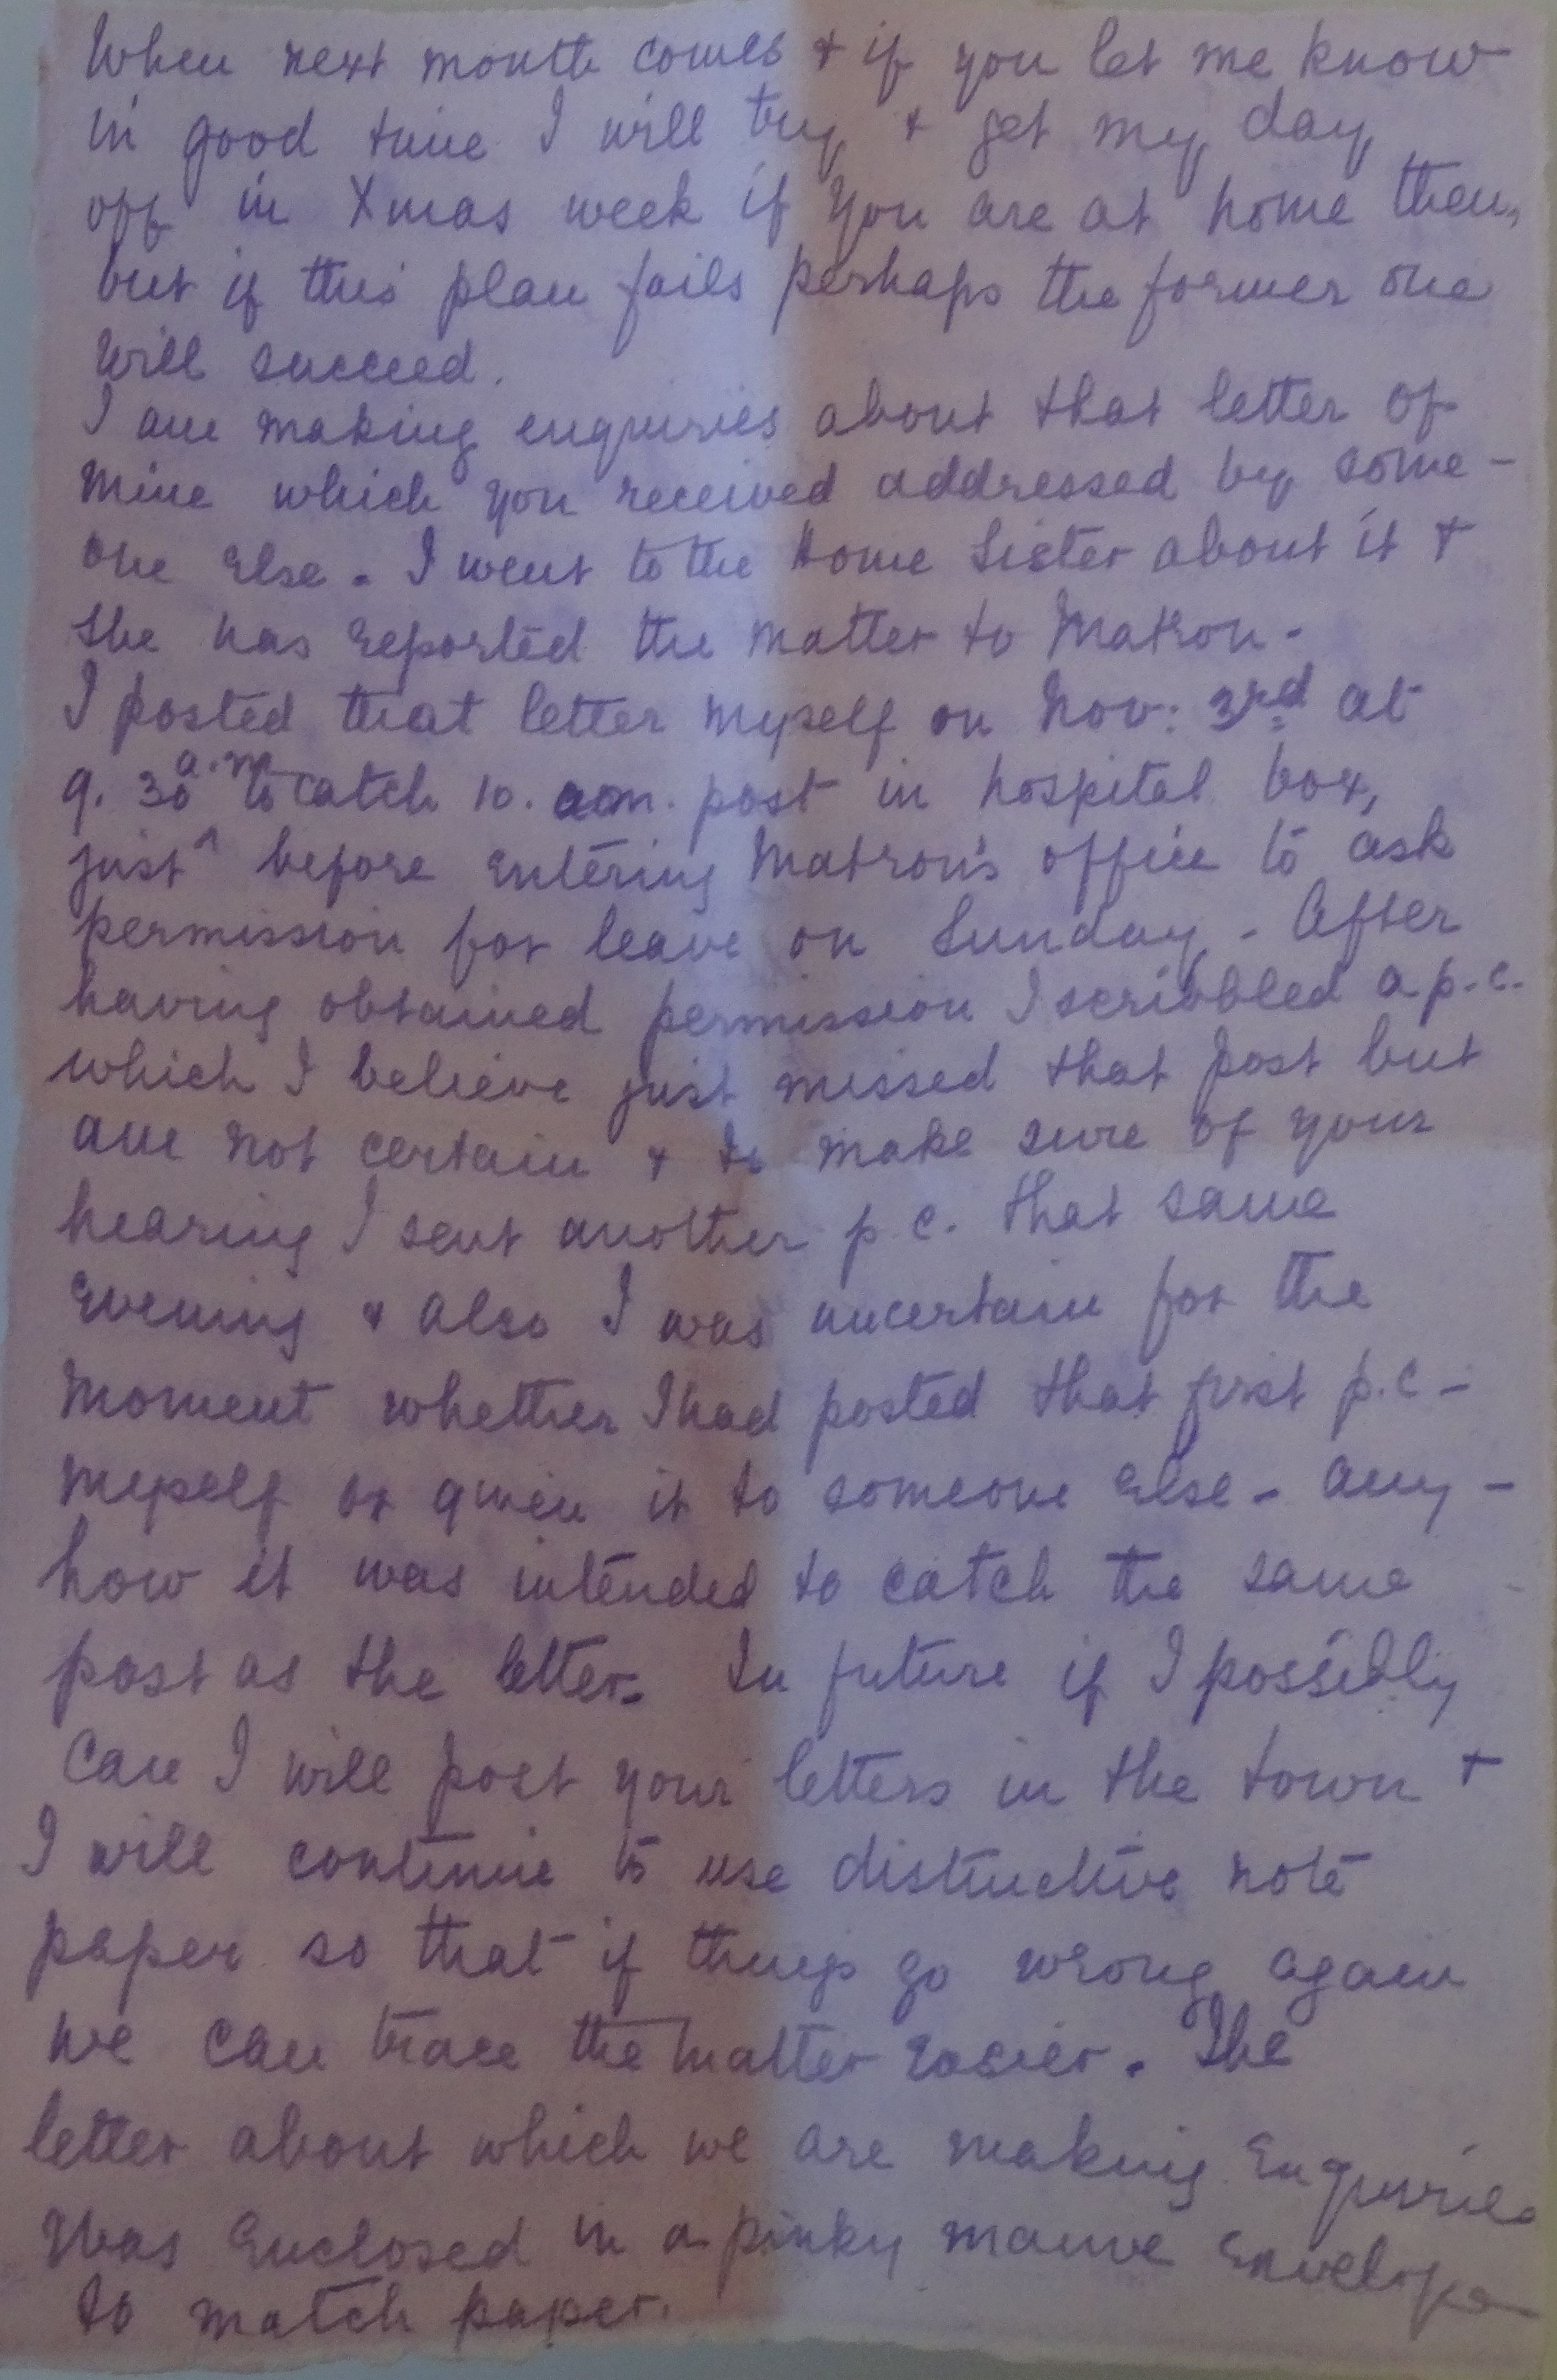 When next month comes + if you let me know
in good time I will try + get my day
off in Xmas week if you are at home then,
but if this plan fails perhaps the former one
will succeed.
I am making enquiries about that letter of
mine which you received addressed by some-
one else. I went to the Home Sister about it +
she has reported the matter to Matron.
I posted that letter myself on Nov: 3rd at
9.30 a.m to catch 10. am. post in hospital box,
just ^ before entering Matron's office to ask
permission for leave on Sunday. After
having obtained permission I scribbled a p.c.
which I believe just missed that post but
am not certain + to make sure of your
hearing I sent another p.c. that same
evening + also I was uncertain for the
moment whether I had posted that first p.c-
myself or given it to someone else - any-
how it was intended to catch the same
post as the letter. In future if I possibly
can I will post your letters in the town +
I will continue to use distinctive note
paper so that if things go wrong again
we can trace the matter easier. The
letter about which we are making enquiries
was enclosed in a pinky mauve envelope
to match paper.